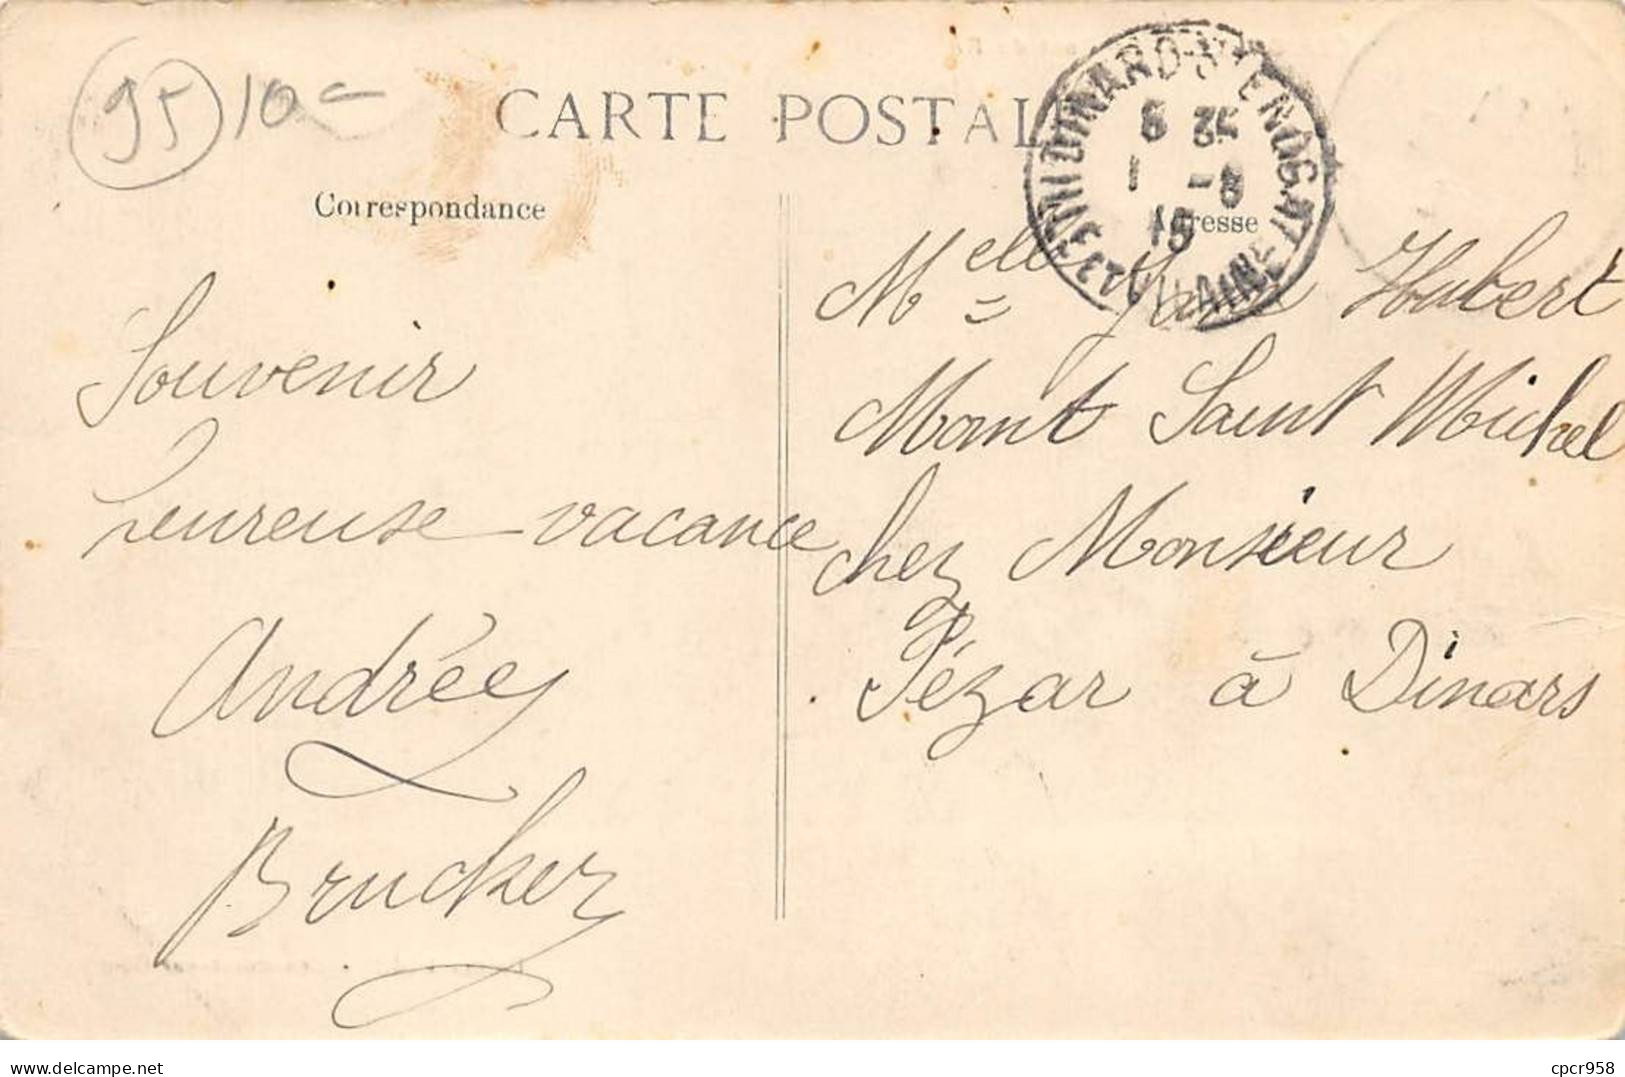 95 10
CARTE POSTALE
Correspondance
Adresse
DINARD-ST ENOGAT
ILLE ET VILAINE
8 35
1 -8
15
Souvenir
heureuse vacance
Andrée
Brucker
Melle Hubert
Mont Saint Michel
chez Monsieur
Pézar à Dinars
delcampe.net
cpcr958